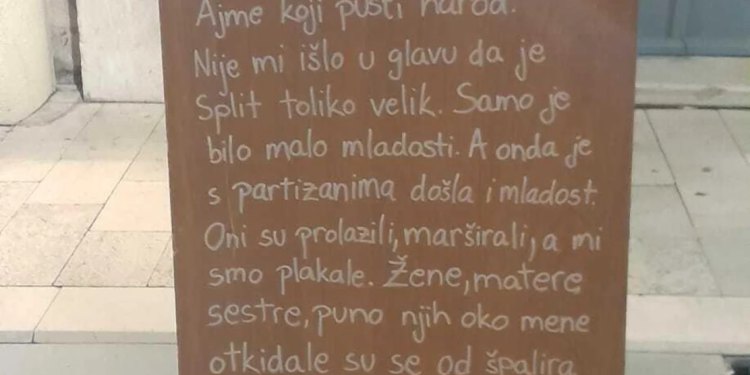 Ajme koji pusti narod.
Nije mi išlo u glavu da je
Split toliko velik. Samo je
bilo malo mladosti. A onda je
s partizanima došla i mladost.
Oni su prolazili, marširali, a mi
smo plakale. Žene, matere
sestre, puno njih oko mene
otkidale su se od špalira